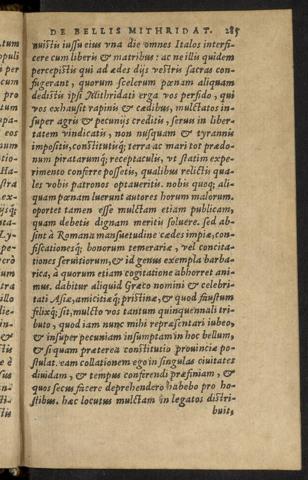 DE BELLIS MITHRIDAT. 285
nuistis iussu eius vna die omnes Italos interfi-
cere cum liberis & matribus: ac ne illi quidem
percepistis qui ad ædes dijs vestris sacras con-
fugerant, quorum scelerum pœnam aliquam
dedistis ipsi Mithridati erga vos perfido, qui
vos exhausit rapinis & cædibus, mulctatos in-
super agris & pecunijs creditis, seruis in liber-
tatem vindicatis, non nusquam & tyrannis
impositis, constitutisq́; terra ac mari tot prædo-
num piratarumq́; receptaculis, vt statim expe-
rimento conferre possetis, qualibus relictis qua-
les vobis patronos optaueritis. nobis quoq; ali-
quam pœnam luerunt autores horum malorum.
oportet tamen esse mulctam etiam publicam,
quam debetis dignam meritis soluere. sed ab-
sint à Romana mansuetudine cædes impiæ, con-
fiscationesq́; bonorum temerariæ, vel concita-
tiones seruitiorum, & id genus exempla barba-
rica, à quorum etiam cogitatione abhorret ani-
mus. dabitur aliquid Græco nomini & celebri-
tati Asiæ, amicitiæq́; pristinæ, & quod faustum
felixq́; sit, mulcto vos tantum quinquennali tri-
buto, quod iam nunc mihi repræsentari iubeo,
& insuper pecuniam insumptam in hoc bellum,
& siquam præterea constitutio prouinciæ po-
stulat. eam collationem ego in singulas ciuitates
diuidam, & tempus conferendi præfiniam, &
quos secus facere deprehendero habebo pro ho-
stibus. hæc locutus mulctam in legatos distri-
buit,